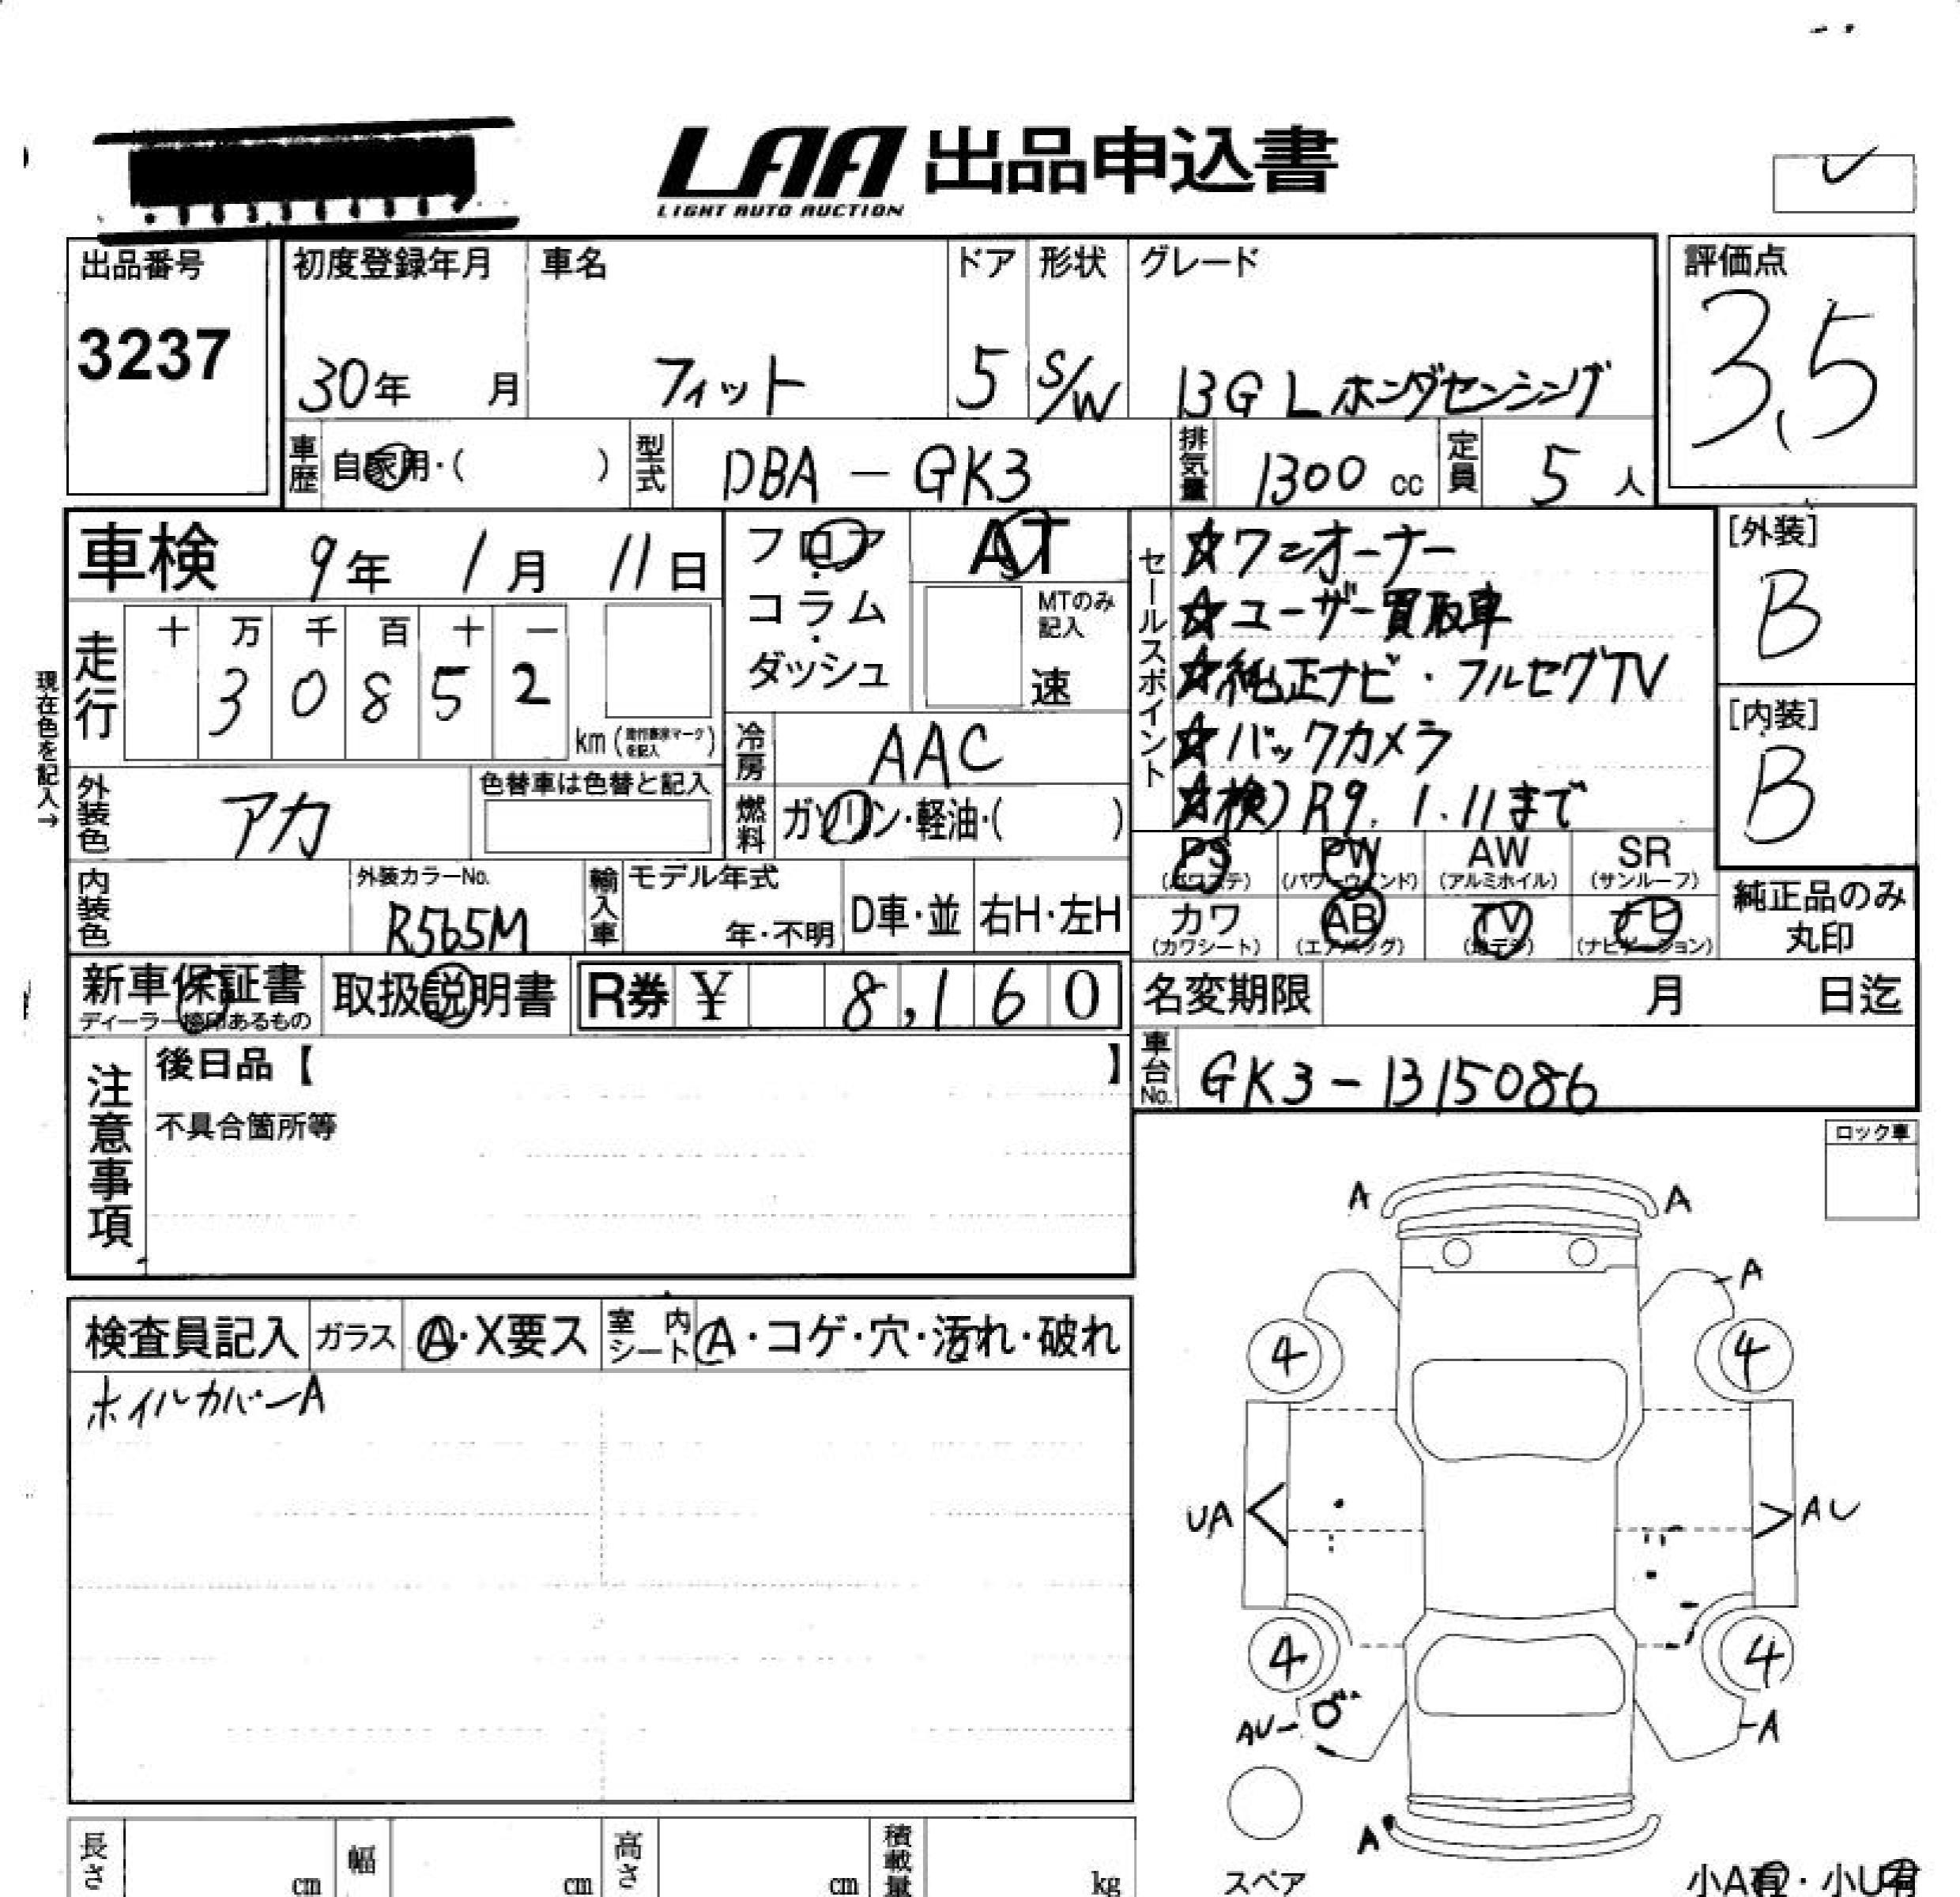 LAA 出品申込書
LIGHT AUTO AUCTION
出品番号
3237
初度登録年月
30年 月
車名
フィット
ドア
5
形状
S/W
グレード
13G L ホンダセンシング
評価点
3.5
車歴 自家用・( )
型式 DBA - GK3
排気量 1300 cc
定員 5 人
車検 9年 1月 11日
フロア・コラム・ダッシュ
AT
MTのみ記入
速
セールスポイント
☆ワンオーナー
☆ユーザー買取車
☆純正ナビ・フルセグTV
☆バックカメラ
☆検)R9.1.11まで
[外装]
B
[内装]
B
現在色を記入→
走行
十 万 千 百 十 一
3 0 8 5 2
km
冷房 AAC
外装色 アカ
色替車は色替と記入
燃料 ガソリン・軽油・( )
内装色
外装カラーNo.
R565M
輸入車
モデル年式
年・不明
D車・並
右H・左H
PS (パワステ)
PW (パワーウィンド)
AW (アルミホイル)
SR (サンルーフ)
カワ (カワシート)
AB (エアバッグ)
TV (地デジ)
ナビ (ナビゲーション)
純正品のみ丸印
新車保証書
ディーラー捺印あるもの
取扱説明書
R券 ¥ 8,160
名変期限 月 日迄
車台No. GK3-1315086
注意事項
後日品【 】
不具合箇所等
ロック車
検査員記入
ガラス A・X要ス
室内シート A・コゲ・穴・汚れ・破れ
ホイルカバーA
A A
A
4 4
UA AU
4 4
AU
A
A
スペア
小A有・小U有
長さ cm
幅 cm
高さ cm
積載量 kg